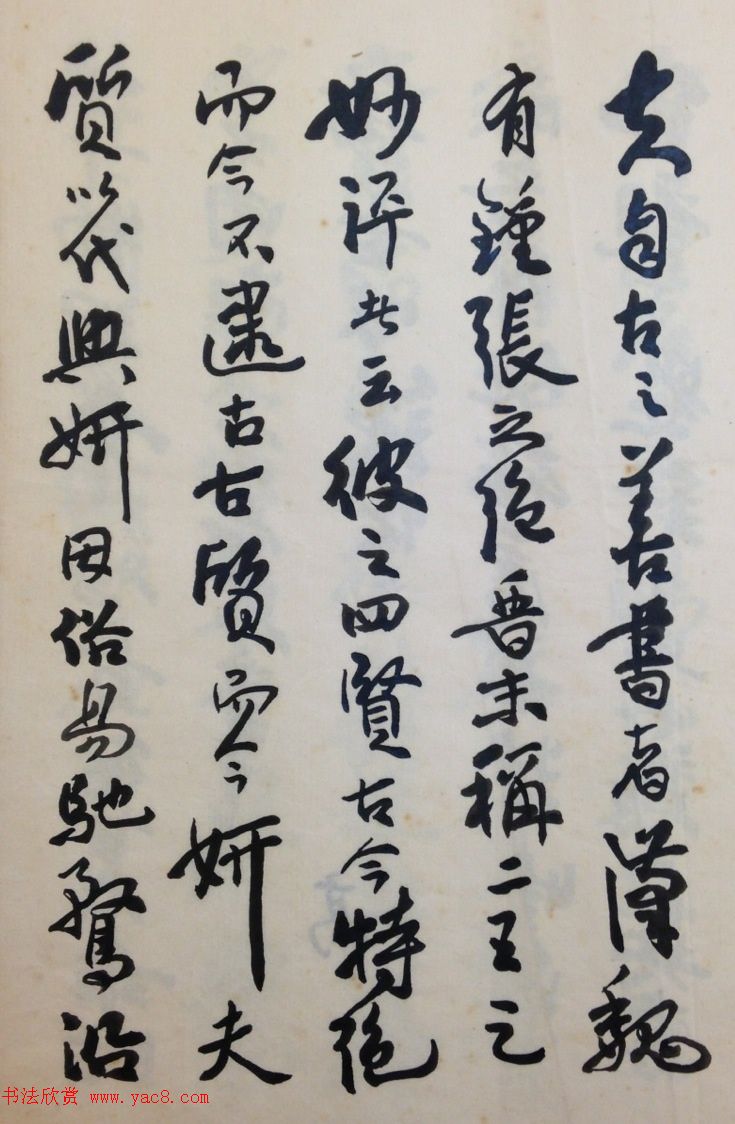 夫自古之善書者漢魏
有鍾張之絕晉末稱二王之
妙評者云彼之四賢古今特絕
而今不逮古古質而今妍夫
質以代興妍因俗易馳騖沿
书法欣赏 www.yac8.com